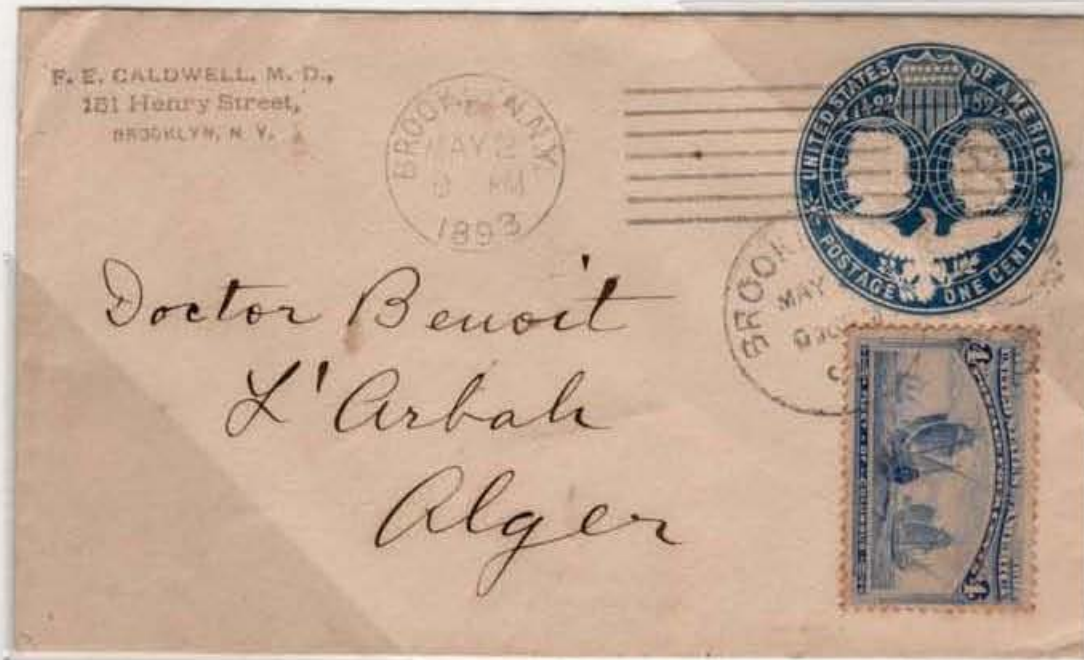 F. E. CALDWELL, M. D.,
181 Henry Street,
BROOKLYN, N. Y.
BROOK N.N.Y.
MAY 2
PM
1893
UNITED STATES OF AMERICA
1492 1892
POSTAGE ONE CENT.
BROOK
MAY
Doctor Benoit
L'Arbah
Alger